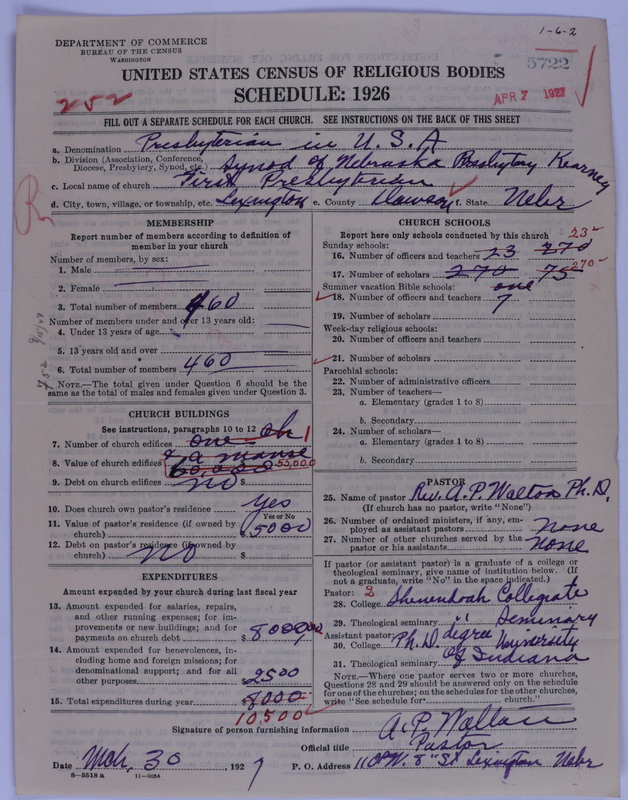 1-6-2
DEPARTMENT OF COMMERCE
BUREAU OF THE CENSUS
WASHINGTON
5722
UNITED STATES CENSUS OF RELIGIOUS BODIES
SCHEDULE: 1926
252
APR 7 1927
FILL OUT A SEPARATE SCHEDULE FOR EACH CHURCH. SEE INSTRUCTIONS ON THE BACK OF THIS SHEET
a. Denomination Presbyterian in U.S.A
b. Division (Association, Conference, Diocese, Presbytery, Synod, etc.) Synod of Nebraska Presbytery Kearney
c. Local name of church First Presbyterian
d. City, town, village, or township, etc. Lexington e. County Dawson f. State Nebr
MEMBERSHIP
Report number of members according to definition of member in your church
Number of members, by sex:
1. Male
2. Female
3. Total number of members 460
Number of members under and over 13 years old:
4. Under 13 years of age
5. 13 years old and over
6. Total number of members 460
NOTE.—The total given under Question 6 should be the same as the total of males and females given under Question 3.
CHURCH BUILDINGS
See instructions, paragraphs 10 to 12
7. Number of church edifices one ch 1
& a manse
8. Value of church edifices 60,000 55,000
9. Debt on church edifices no $
10. Does church own pastor's residence yes
Yes or No
11. Value of pastor's residence (if owned by church) $ 5000
12. Debt on pastor's residence (if owned by church) no $
EXPENDITURES
Amount expended by your church during last fiscal year
13. Amount expended for salaries, repairs, and other running expenses; for improvements or new buildings; and for payments on church debt $ 8000
14. Amount expended for benevolences, including home and foreign missions; for denominational support; and for all other purposes 2500
15. Total expenditures during year 8000
10,500
CHURCH SCHOOLS
Report here only schools conducted by this church
Sunday schools: 23
16. Number of officers and teachers 23 270
17. Number of scholars 270 75 270
Summer vacation Bible schools: one
18. Number of officers and teachers 7
19. Number of scholars
Week-day religious schools:
20. Number of officers and teachers
21. Number of scholars
Parochial schools:
22. Number of administrative officers
23. Number of teachers—
a. Elementary (grades 1 to 8)
b. Secondary
24. Number of scholars—
a. Elementary (grades 1 to 8)
b. Secondary
PASTOR
25. Name of pastor Rev. A. P. Walton Ph. D,
(If church has no pastor, write "None")
26. Number of ordained ministers, if any, employed as assistant pastors none
27. Number of other churches served by the pastor or his assistants none
If pastor (or assistant pastor) is a graduate of a college or theological seminary, give name of institution below. (If not a graduate, write "No" in the space indicated.)
Pastor: 2
28. College Shenendoah Collegiate
29. Theological seminary " Seminary
Assistant pastor:
30. College Ph. D. degree University
31. Theological seminary of Indiana
NOTE.—Where one pastor serves two or more churches, Questions 28 and 29 should be answered only on the schedule for one of the churches; on the schedules for the other churches, write "See schedule for church."
Signature of person furnishing information A. P. Walton
Official title Pastor
Date Mch, 30, 1927 P. O. Address St Lexington Nebr
8-5518 a 11-9064